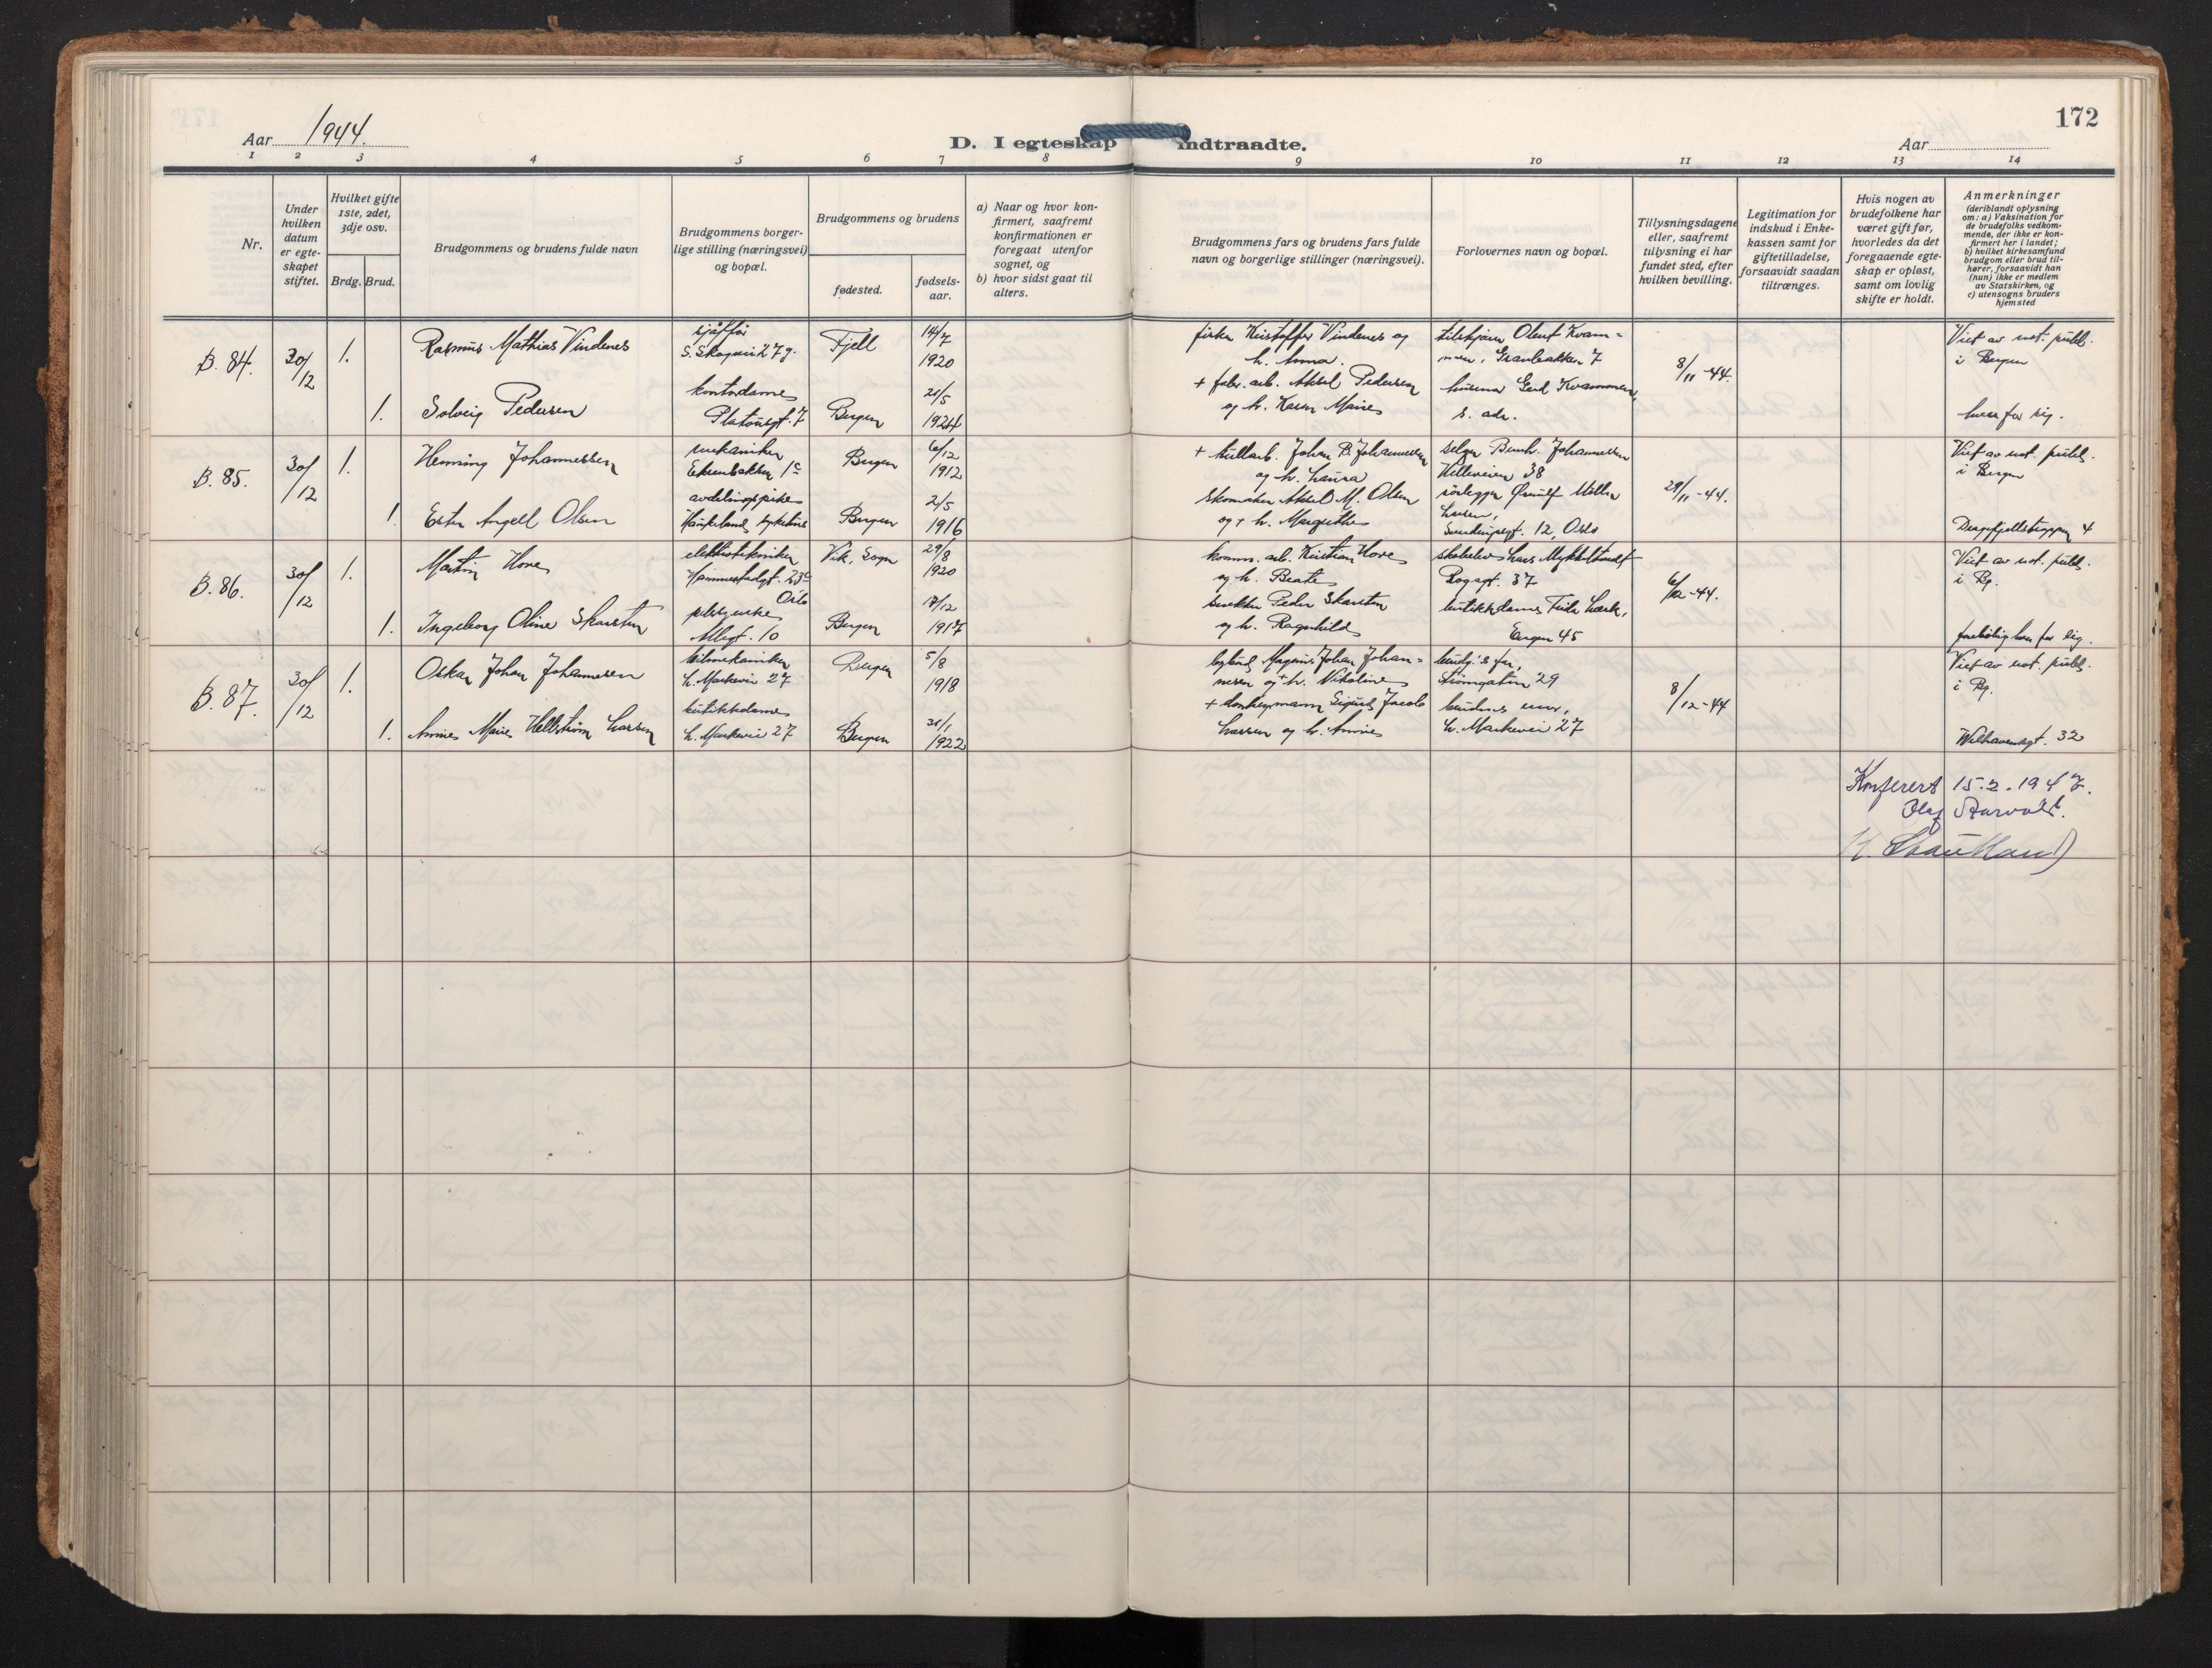 172
Aar 1944.
D. I egteskap indtraadte.
Aar
1 2 3 4 5 6 7 8 9 10 11 12 13 14
Nr.
Under hvilken datum er egteskapet stiftet.
Hvilket gifte 1ste, 2det, 3dje osv.
Brdg. Brud.
Brudgommens og brudens fulde navn
Brudgommens borgerlige stilling (næringsvei) og bopæl.
Brudgommens og brudens
fødested.
fødselsaar.
a) Naar og hvor konfirmert, saafremt konfirmationen er foregaat utenfor sognet, og
b) hvor sidst gaat til alters.
Brudgommens fars og brudens fars fulde navn og borgerlige stillinger (næringsvei).
Forlovernes navn og bopæl.
Tillysningsdagene eller, saafremt tillysning ei har fundet sted, efter hvilken bevilling.
Legitimation for indskud i Enkekassen samt for giftetilladelse, forsaavidt saadan tiltrænges.
Hvis nogen av brudefolkene har været gift før, hvorledes da det foregaaende egteskap er opløst, samt om lovlig skifte er holdt.
Anmerkninger
(deriblandt oplysning om: a) Vaksination for de brudefolks vedkommende, der ikke er konfirmert her i landet; b) hvilket kirkesamfund brudgom eller brud tilhører, forsaavidt han (hun) ikke er medlem av Statskirken, og c) utensogns bruders hjemsted
B. 84. 30/12 1. Rasmus Mathias Vindenes
sjåffør
S. Skogvei 27 g.
Fjell
14/7 1920
fisker Kristoffer Vindenes og
h. Anna.
Oluf Kvammen,
Granbakken 7
8/11-44.
Viet av not. publ.
i Bergen
1. Solveig Pedersen
kontordame
Platousgt. 7
Bergen
21/5 1924
+ fabr. arb. Aksel Pedersen
og h. Karen Marie
husmor Gerd Kvammen,
s. adr.
hver for sig.
B. 85. 30/12 1. Henning Johannessen
mekaniker
Ekrenbakken 1c
Bergen
6/12 1912
+ kullarb. Johan B. Johannessen
og h. Laura
selger Bernh. Johannessen
Helleveien 38
29/11-44.
Viet av not. publ.
i Bergen
1. Ester Angell Olsen
avdelingspike
Haukeland sykehus
Bergen
2/5 1916
skomaker Aksel M. Olsen
og + h. Margrethe
rørlegger Ørnulf Møller
Larsen,
12, Oslo
4
B. 86. 30/12 1. Martin Hove
elektrotekniker
Hammerstadgt. 23c
Oslo
Vik, Sogn
29/8 1920
komm. arb. Kristian Hove
og h. Beate
Lars Mykkeltvedt
37
6/12-44.
Viet av not. publ.
i Bg.
1. Ingeborg Oline Skarsten
Allegt. 10
Bergen
17/12 1917
snekker Peder Skarsten
og h. Ragnhild
butikkdame
Engen 45
foreløbig hver for sig.
B. 87. 30/12 1. Oskar Johan Johannesen
bilmekaniker
L. Markevei 27
Bergen
5/8 1918
bybud Magnus Johan Johannesen
og + h. Nikoline
brudg.'s far,
Strømgaten 29
8/12-44
Viet av not. publ.
i Bg.
1. Annie Marie Hellstrøm Larsen
butikkdame
L. Markevei 27
Bergen
31/1 1922
+ donkeymann Sigurd Jacob
Larsen og h. Annie
brudens mor,
L. Markevei 27
Welhavensgt. 32
Konferert 15.2.1947.
Olaf